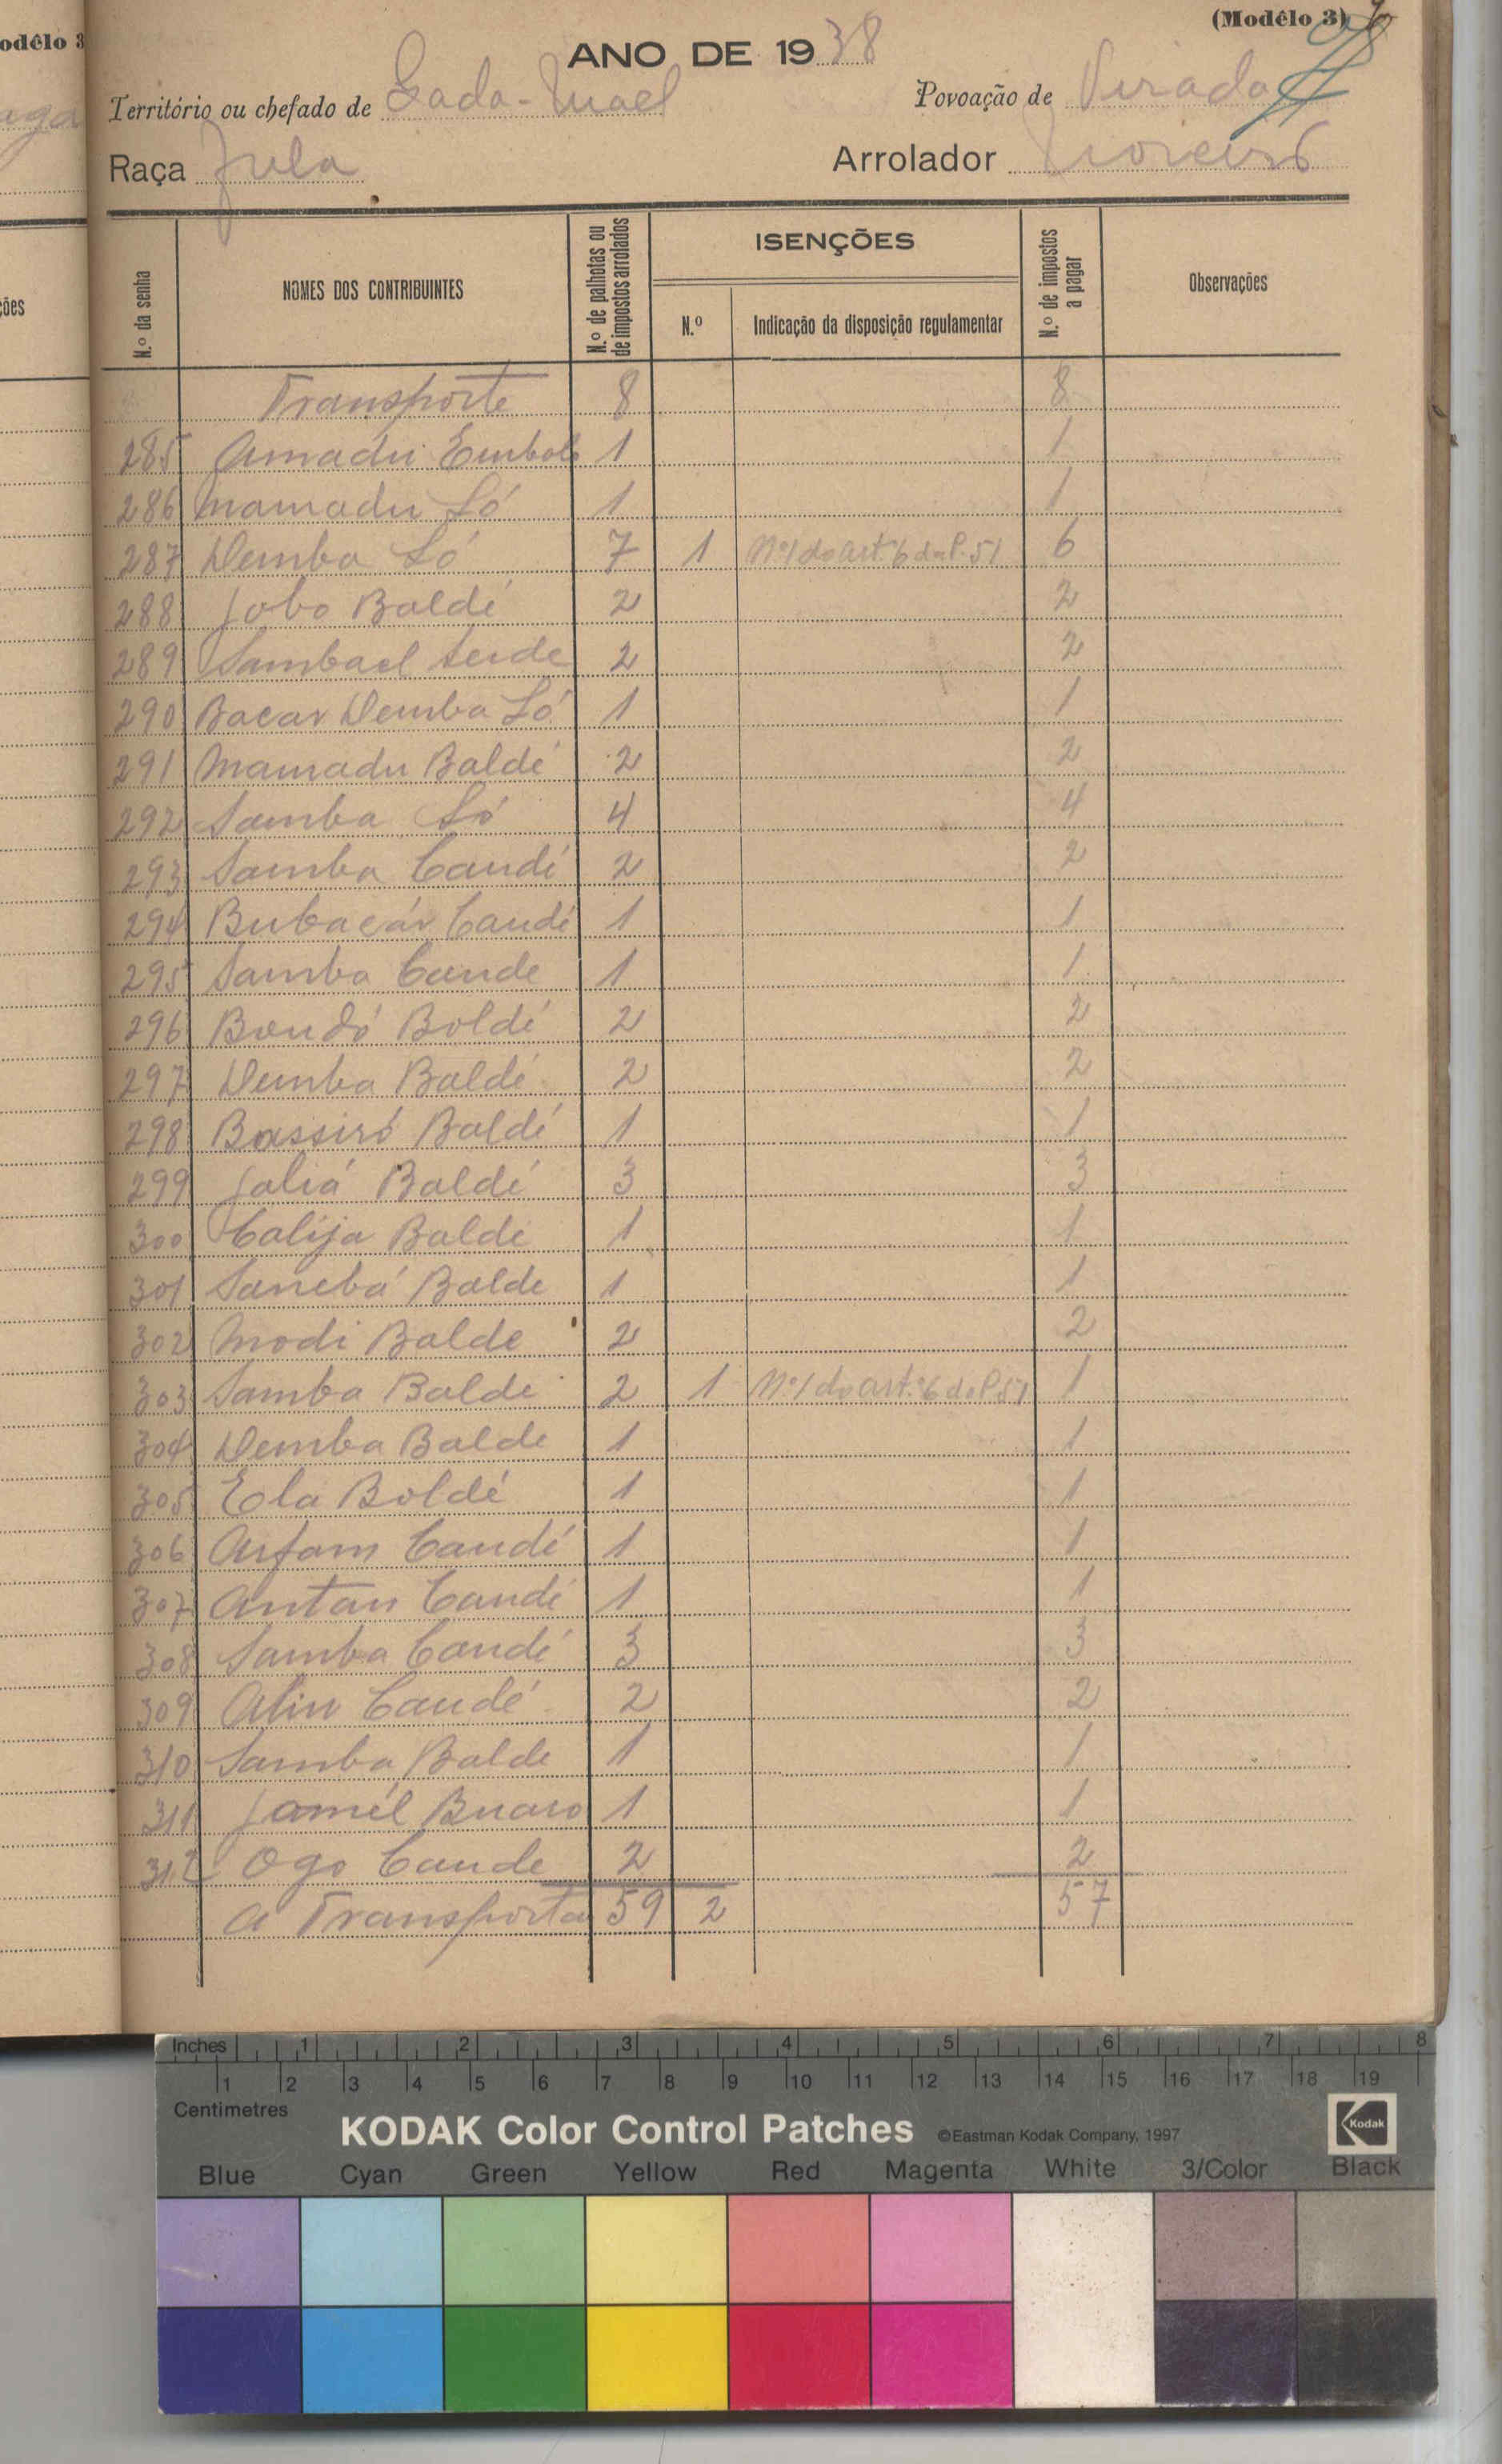 odêlo 3
ções
(Modêlo 3)
ANO DE 1938
Território ou chefado de Gada-Mael Povoação de Pirada
Raça Fula Arrolador Moreira
N.º da senha NOMES DOS CONTRIBUINTES N.º de palhotas ou de impostos arrolados ISENÇÕES N.º de impostos a pagar Observações
N.º Indicação da disposição regulamentar
Transporte 8 8
285 Amadú Embaló 1 1
286 Mamadu Só 1 1
287 Demba Só 7 1 Nº1 do art.º 6 do P. 51 6
288 Jobo Baldé 2 2
289 Sambael Seide 2 2
290 Bacar Demba Só 1 1
291 Mamadu Baldé 2 2
292 Samba Só 4 4
293 Samba Candé 2 2
294 Bubacár Candé 1 1
295 Samba Cande 1 1
296 Boudó Boldé 2 2
297 Demba Baldé 2 2
298 Bassiró Baldé 1 1
299 Jaliá Baldé 3 3
300 Calija Balde 1 1
301 Sanebá Balde 1 1
302 Modi Balde 2 2
303 Samba Balde 2 1 Nº1 do art.º 6 do P. 51 1
304 Demba Balde 1 1
305 Ela Boldé 1 1
306 Arfam Candé 1 1
307 Antan Candé 1 1
308 Samba Candé 3 3
309 Aliu Candé 2 2
310 Samba Balde 1 1
311 Jamél Buaro 1 1
312 Ogo Cande 2 2
A Transportar 59 2 57
Inches 1 2 3 4 5 6 7 8
1 2 3 4 5 6 7 8 9 10 11 12 13 14 15 16 17 18 19
Centimetres
KODAK Color Control Patches ©Eastman Kodak Company, 1997 Kodak
Blue Cyan Green Yellow Red Magenta White 3/Color Black